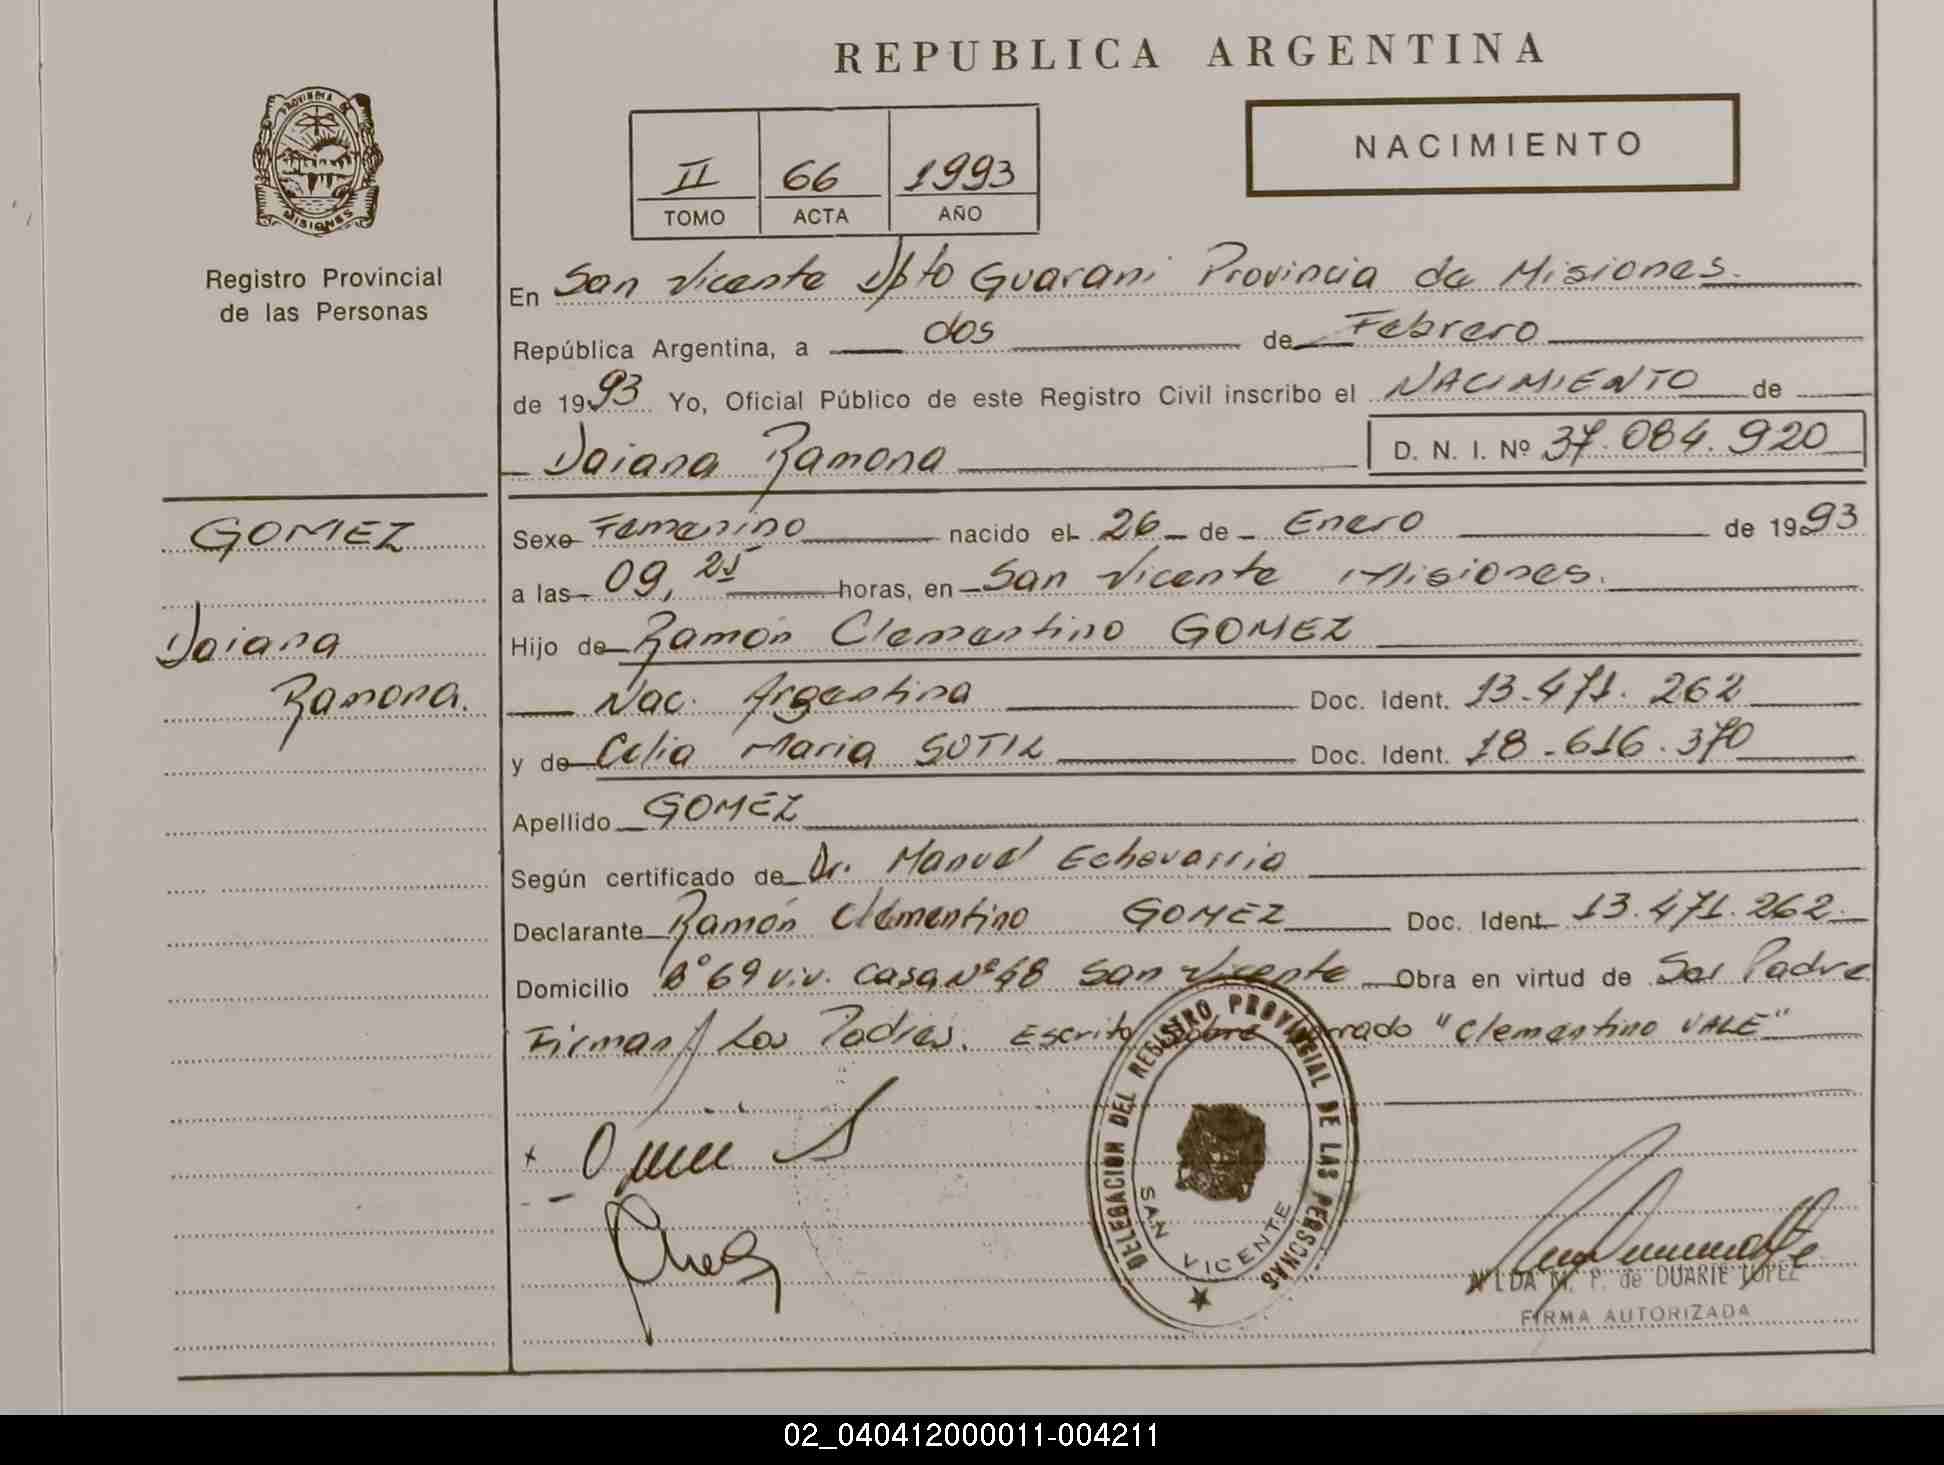 REPUBLICA ARGENTINA
PROVINCIA DE MISIONES
Registro Provincial
de las Personas
II 66 1993
TOMO ACTA AÑO
NACIMIENTO
En San Vicente Dpto Guarani Provincia de Misiones.
República Argentina, a dos de Febrero
de 1993 Yo, Oficial Público de este Registro Civil inscribo el NACIMIENTO de
Daiana Ramona D. N. I. Nº 37.084.920
GOMEZ
Daiana
Ramona.
Sexo Femenino nacido el 26 de Enero de 1993
a las 09,25 horas, en San Vicente Misiones.
Hijo de Ramón Clementino GOMEZ
Nac. Argentina Doc. Ident. 13.471.262
y de Celia Maria SUTIL Doc. Ident. 18.616.370
Apellido GOMEZ
Según certificado de Dr. Manuel Echevarria
Declarante Ramón Clementino GOMEZ Doc. Ident 13.471.262.
Domicilio B° 69 viv. Casa Nº 48 San Vicente Obra en virtud de Ser Padre
Firman Los Padres. Escrito sobre borrado "Clementino VALE"
DELEGACION DEL REGISTRO PROVINCIAL DE LAS PERSONAS
SAN VICENTE
NILDA M. P. de DUARTE LOPEZ
FIRMA AUTORIZADA
02_040412000011-004211